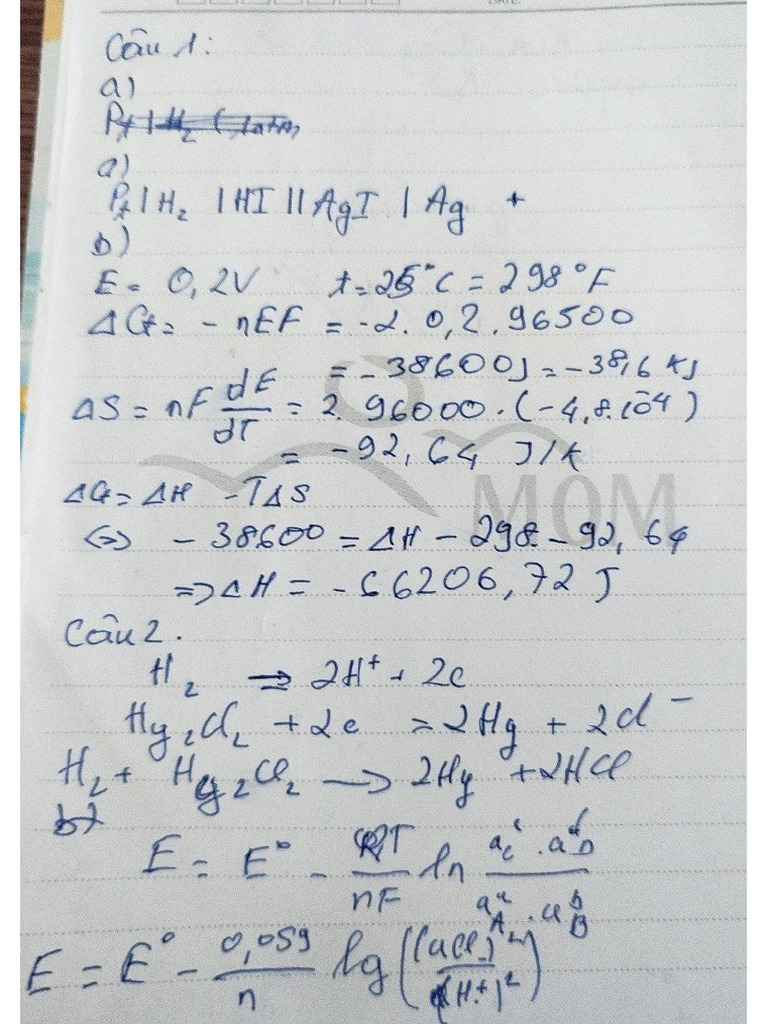 DATE:
Câu 1:
a)
Pt | H₂ (1atm)
a)
Pt | H₂ | HI || AgI | Ag +
b)
E = 0,2V t = 25°C = 298°F
ΔG = - nEF = -2. 0,2. 96500
= -38600J = -38,6 KJ
ΔS = nF dE/dT = 2. 96000. (-4,8.10⁻⁴)
= -92,64 J/K
ΔG = ΔH - TΔS
<=> - 38600 = ΔH - 298. -92,64
=> ΔH = -66206,72 J
MOM
Câu 2.
H₂ ⇌ 2H⁺ + 2e
Hg₂Cl₂ + 2e = 2Hg + 2Cl⁻
H₂ + Hg₂Cl₂ → 2Hg + 2HCl
b)
E = E° - RT/nF ln
E = E° - 0,059/n lg